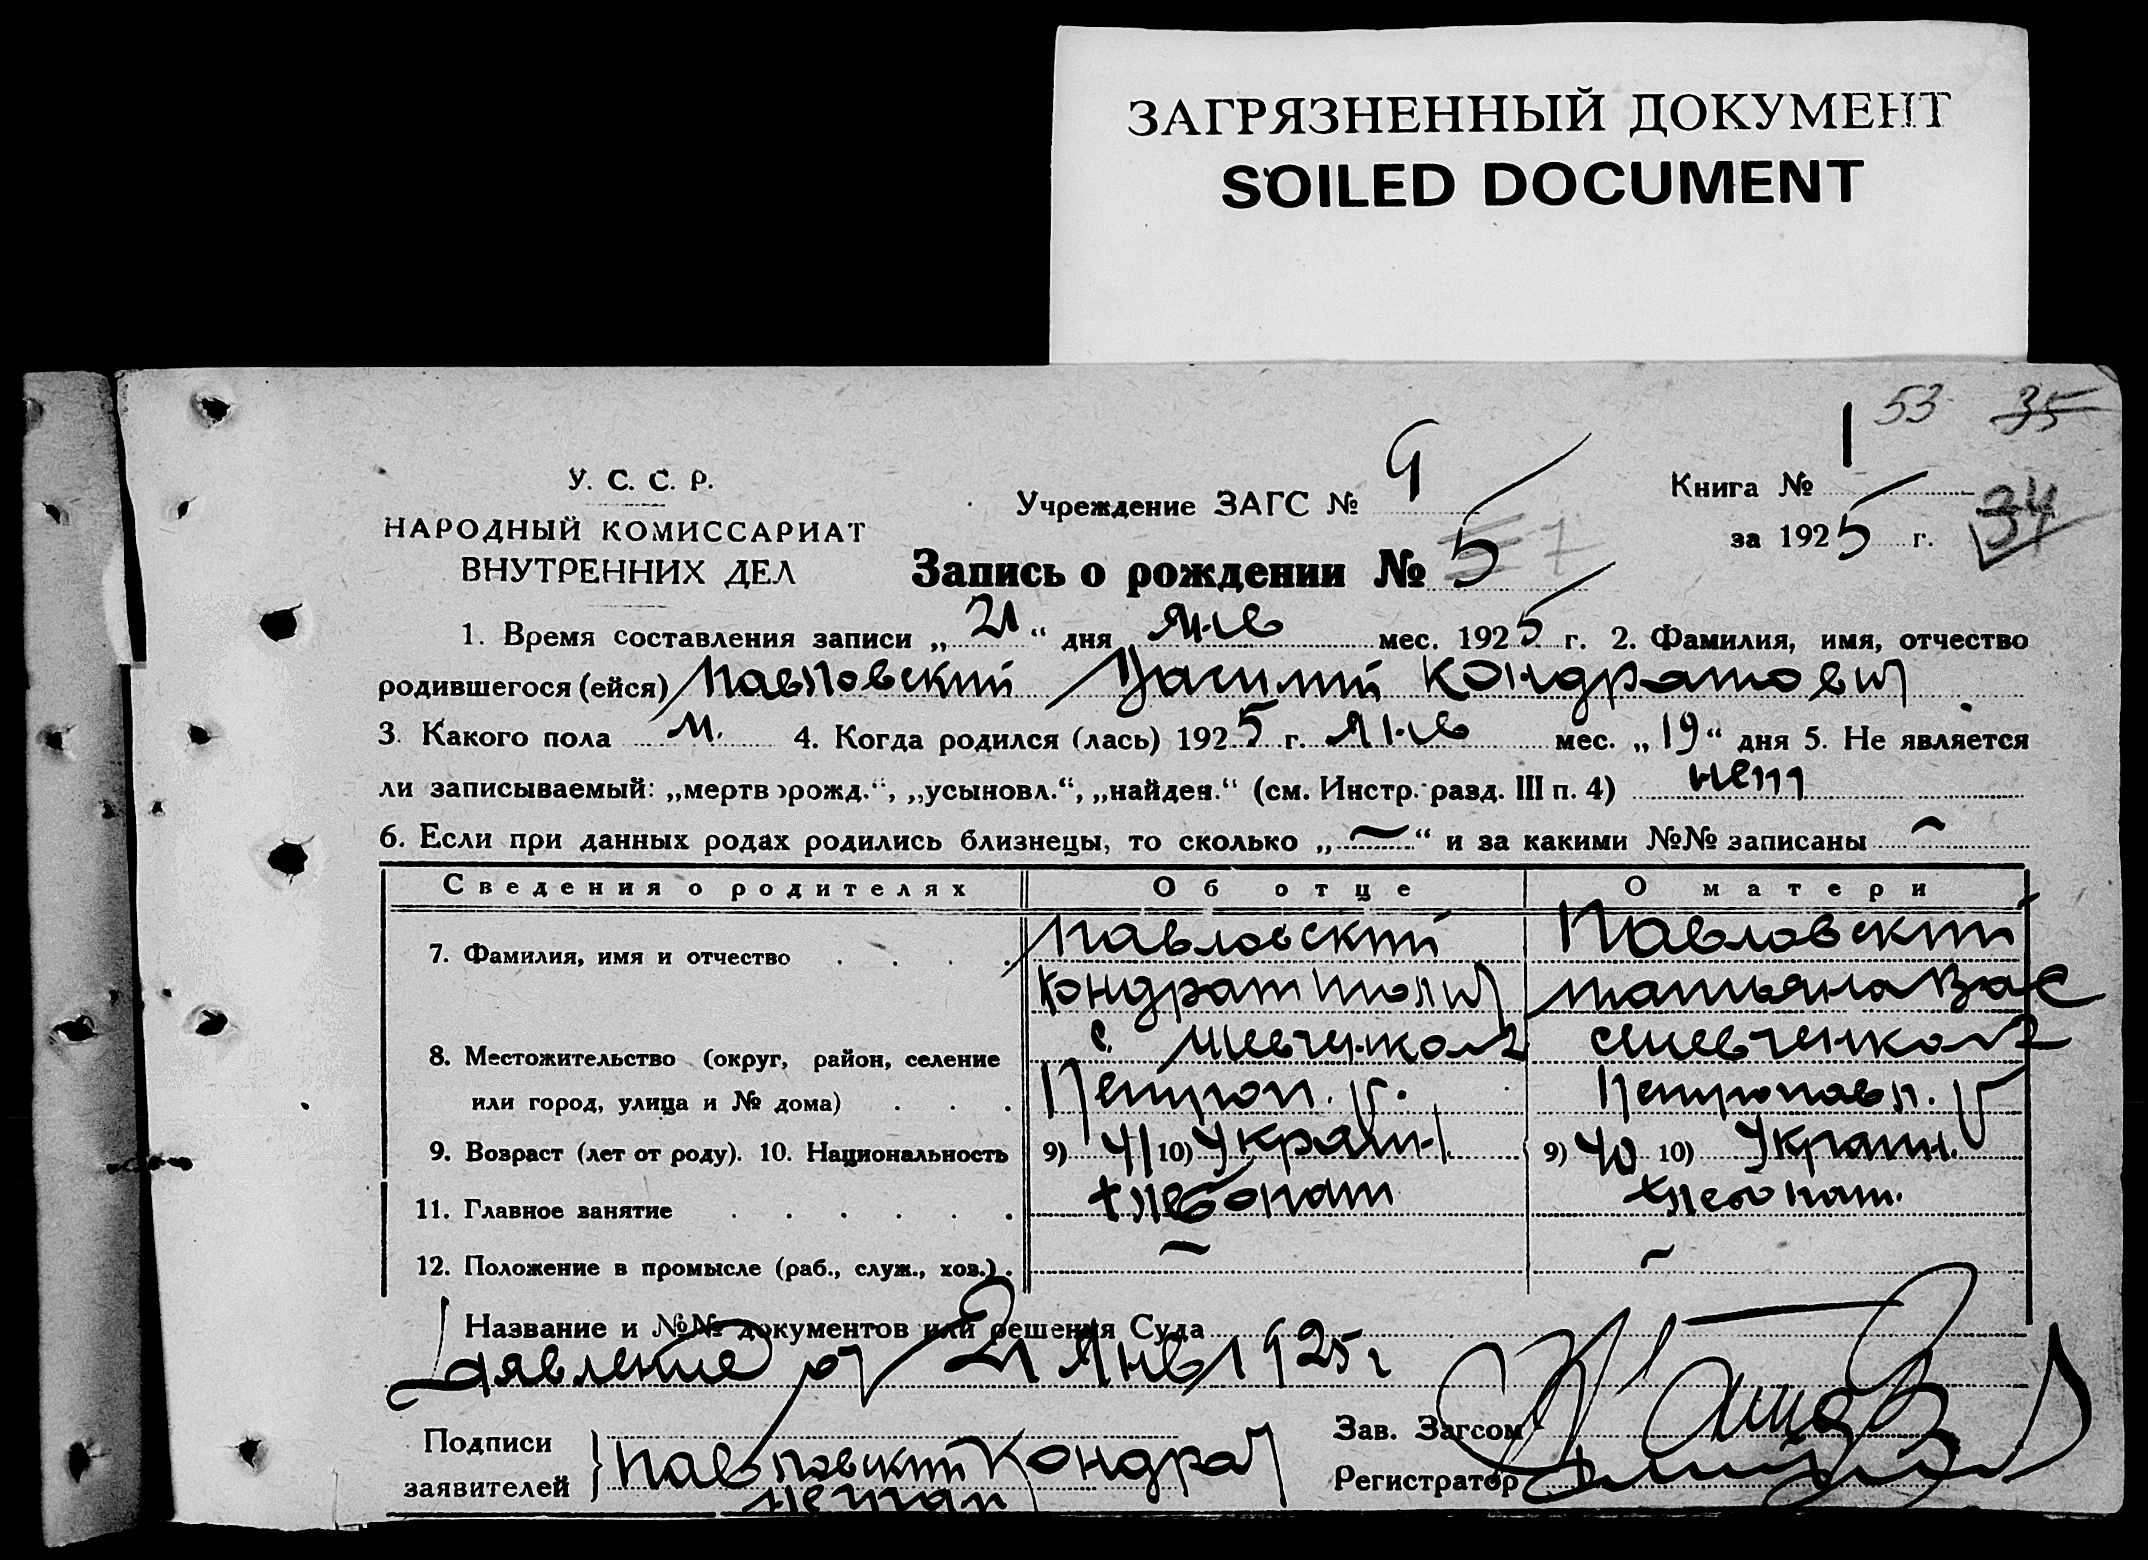 ЗАГРЯЗНЕННЫЙ ДОКУМЕНТ
SOILED DOCUMENT
53 35
34
У. С. С. Р.
НАРОДНЫЙ КОМИССАРИАТ
ВНУТРЕННИХ ДЕЛ
Учреждение ЗАГС № 9
Книга № 1
за 1925 г.
Запись о рождении № 5
1. Время составления записи „21“ дня Янв мес. 1925 г. 2. Фамилия, имя, отчество
родившегося (ейся) Павловский Василий Кондратович
3. Какого пола м. 4. Когда родился (лась) 1925 г. Янв мес. „19“ дня 5. Не является
ли записываемый: „мертворожд.“, „усыновл.“, „найден.“ (см. Инстр. разд. III п. 4) нет
6. Если при данных родах родились близнецы, то сколько „—“ и за какими №№ записаны —
Сведения о родителях Об отце О матери
7. Фамилия, имя и отчество Павловский Павловский
Кондрат Татьяна Вас
8. Местожительство (округ, район, селение с. Шевченко
или город, улица и № дома) Петроп. р. Петропавл. р
9. Возраст (лет от роду). 10. Национальность 9) 41 10) Украин 9) 40 10) Украин.
11. Главное занятие хлебопаш хлебопаш.
12. Положение в промысле (раб., служ., хоз.) — —
Название и №№ документов или решения Суда
Заявление от 21 Янв 1925 г
Подписи
заявителей Павловский Кондрат
неграм
Зав. Загсом
Регистратор